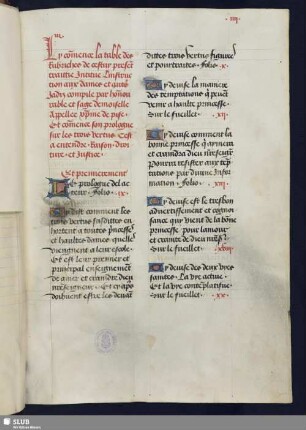 iii
Cy cõmence la table des
rubriches de cestui present
traittie Intitule Linstruc
tion aux dames et quilz
Jadis compile par hõnou
table et sage demoiselle
Appellee xp̃ine de pise
Et cõmence son prologue
sur les trois vertus Cest
a entendre Raison droi
ture et Justice
Et premierement
Le prologue del ac
teur folio ix
Cy dist comment les
trois vertus susdittes en
hortent a toutes princesses
et haultes dames quelles
viengnent a leur escole
Et est leur premier et
principal enseignement
de aimer et craindre dieu
nr̃e seigneur Et cy apõ
doibuent estre les deuãt
dittes trois vertus figurees
et pourtraites folio x
Cy deuise la maniere
des temptations q̃ peuẽt
venir a haulte princesse
Sur le fueillet xii
Cy deuise comment la
bonne princesse q̃ aymera
et craindra dieu nr̃e seign̄r
pourra resister aux tẽp
tations par diuine Infor
mation folio xiii
Cy deuise est le tresbon
aduertissement et cognois
sance qui vient de la bõne
princesse pour lamour
et crainte de dieu nr̃e s̃
Sur le fueillet xviii
Cy deuise des deux vyes
saintes La vye actiue
Et la vye contẽplatiue
sur le fueillet xx
SLUB